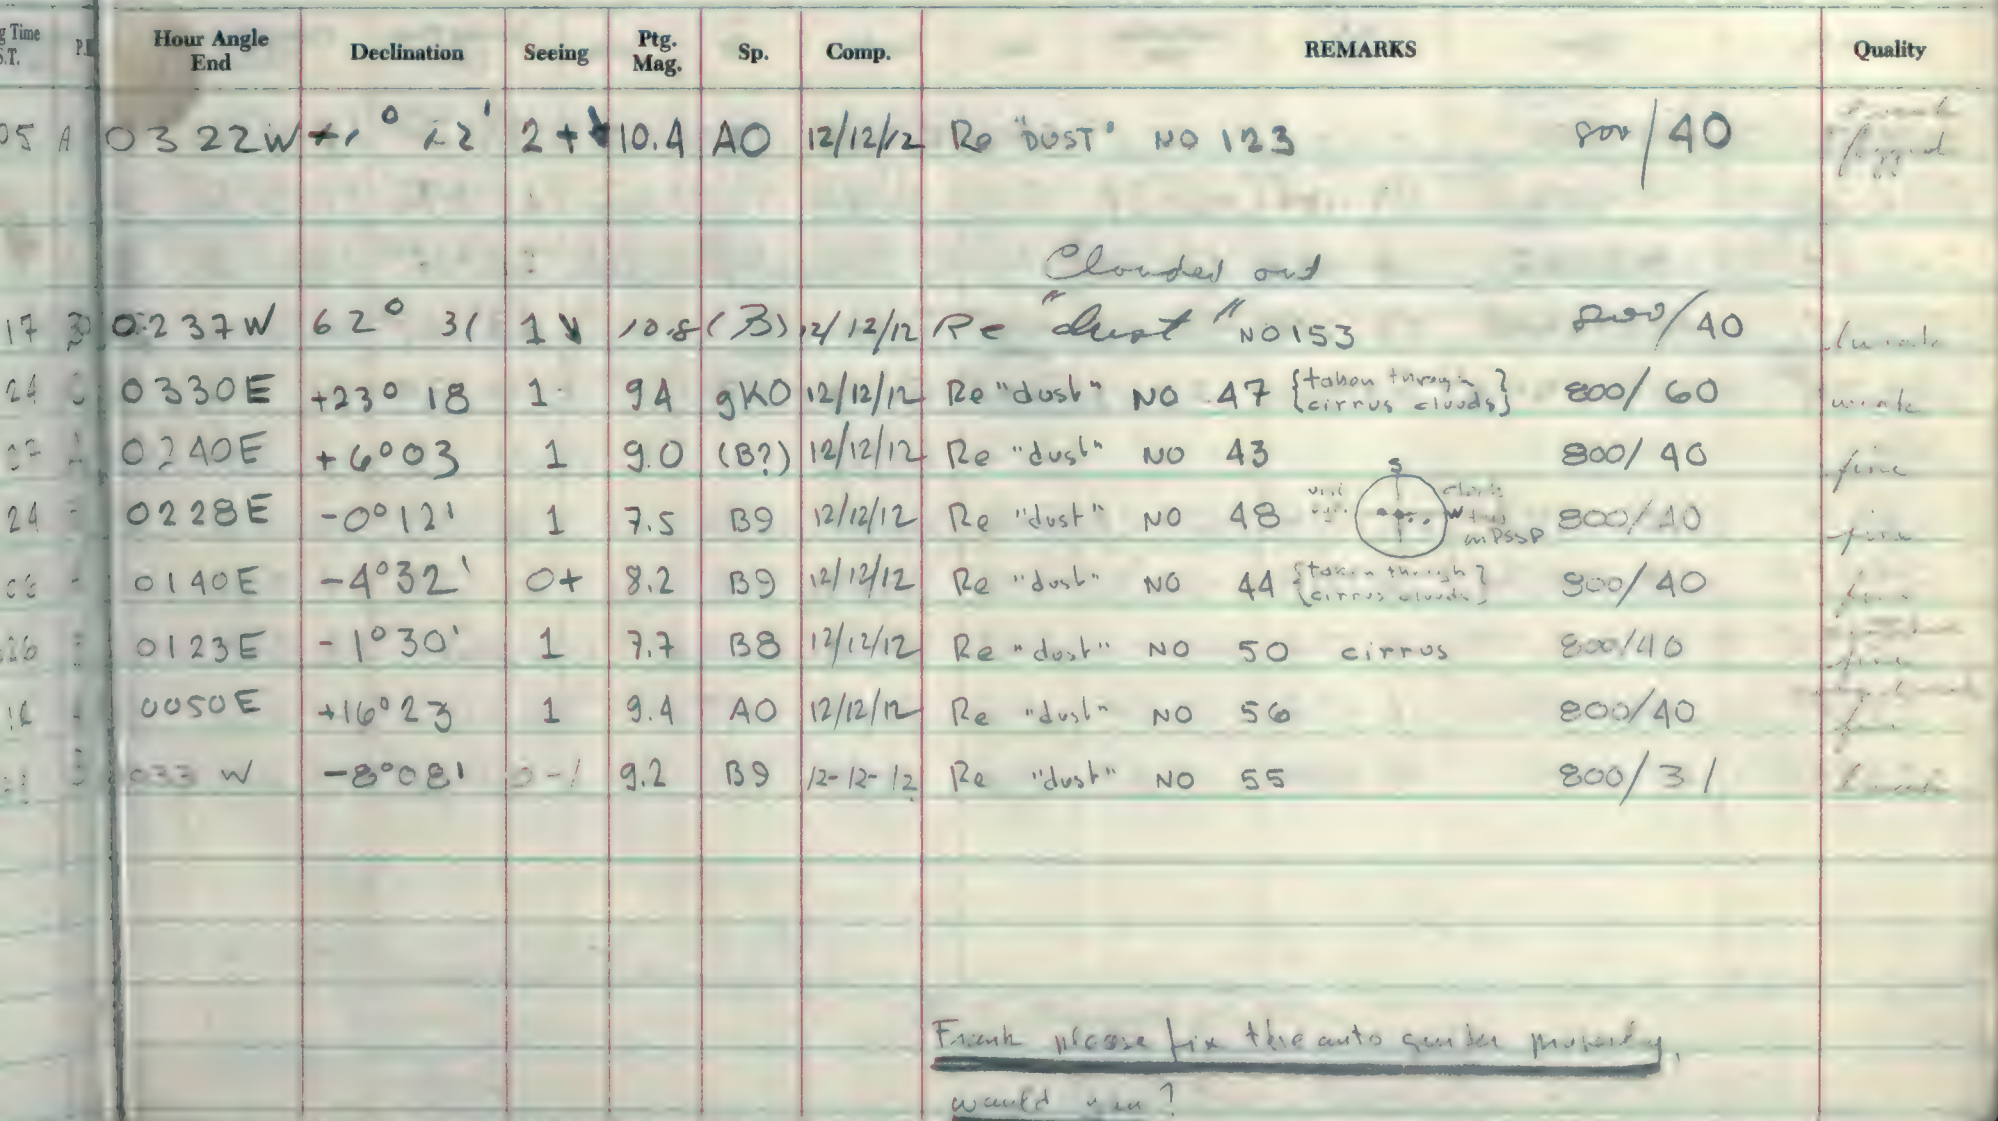 g Time Hour Angle Declination Seeing Ptg. Sp. Comp. REMARKS Quality
S.T. End Mag.
05 A 0322W 2+ 10.4 A0 12/12/12 Re "DUST" NO 123 800/40 fogged
Clouded out
17 0237W 62° 31 1 10.8 (B) 12/12/12 Re "dust" NO 153 800/40
24 0330E +23° 18 1 9.4 gK0 12/12/12 Re "dust" NO 47 {taken through cirrus clouds} 800/60 weak
0240E +6°03 1 9.0 (B?) 12/12/12 Re "dust" NO 43 800/40 fine
S
24 0228E -0°12' 1 7.5 B9 12/12/12 Re "dust" NO 48 W 800/40 fine
0140E -4°32' 0+ 8.2 B9 12/12/12 Re "dust" NO 44 {taken through cirrus clouds} 800/40
26 0123E -1°30' 1 7.7 B8 12/12/12 Re "dust" NO 50 cirrus 800/40
0050E +16°23 1 9.4 A0 12/12/12 Re "dust" NO 56 800/40
033 W -8°08' 0-1 9.2 B9 12-12-12 Re "dust" NO 55 800/31
Frank please fix the auto guider properly,
would you?